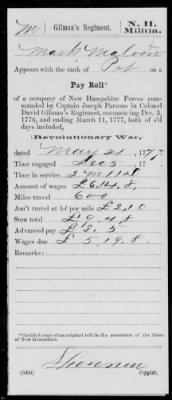 M | Gilman's Regiment. | N. H. Militia.
Mark
Appears with the rank of Pvt. on a
Pay Roll*
of a company of New Hampshire Forces commanded by Captain Joseph Parsons in Colonel David Gilman's Regiment, commencing Dec. 5, 1776, and ending March 11, 1777, both of said days included,
Revolutionary War,
dated May 21, 1777.
Time engaged Dec 5, 17
Time in service 3 M 11 d
Amount of wages £6.14.8,
Miles travel 600
Am't travel at 1d per mile £2.10
Sum total
Advanced pay £3. 5
Wages due £5.19.8.
Remarks:
*Certified copy of an original roll in the possession of the State of New Hampshire.
Copyist.